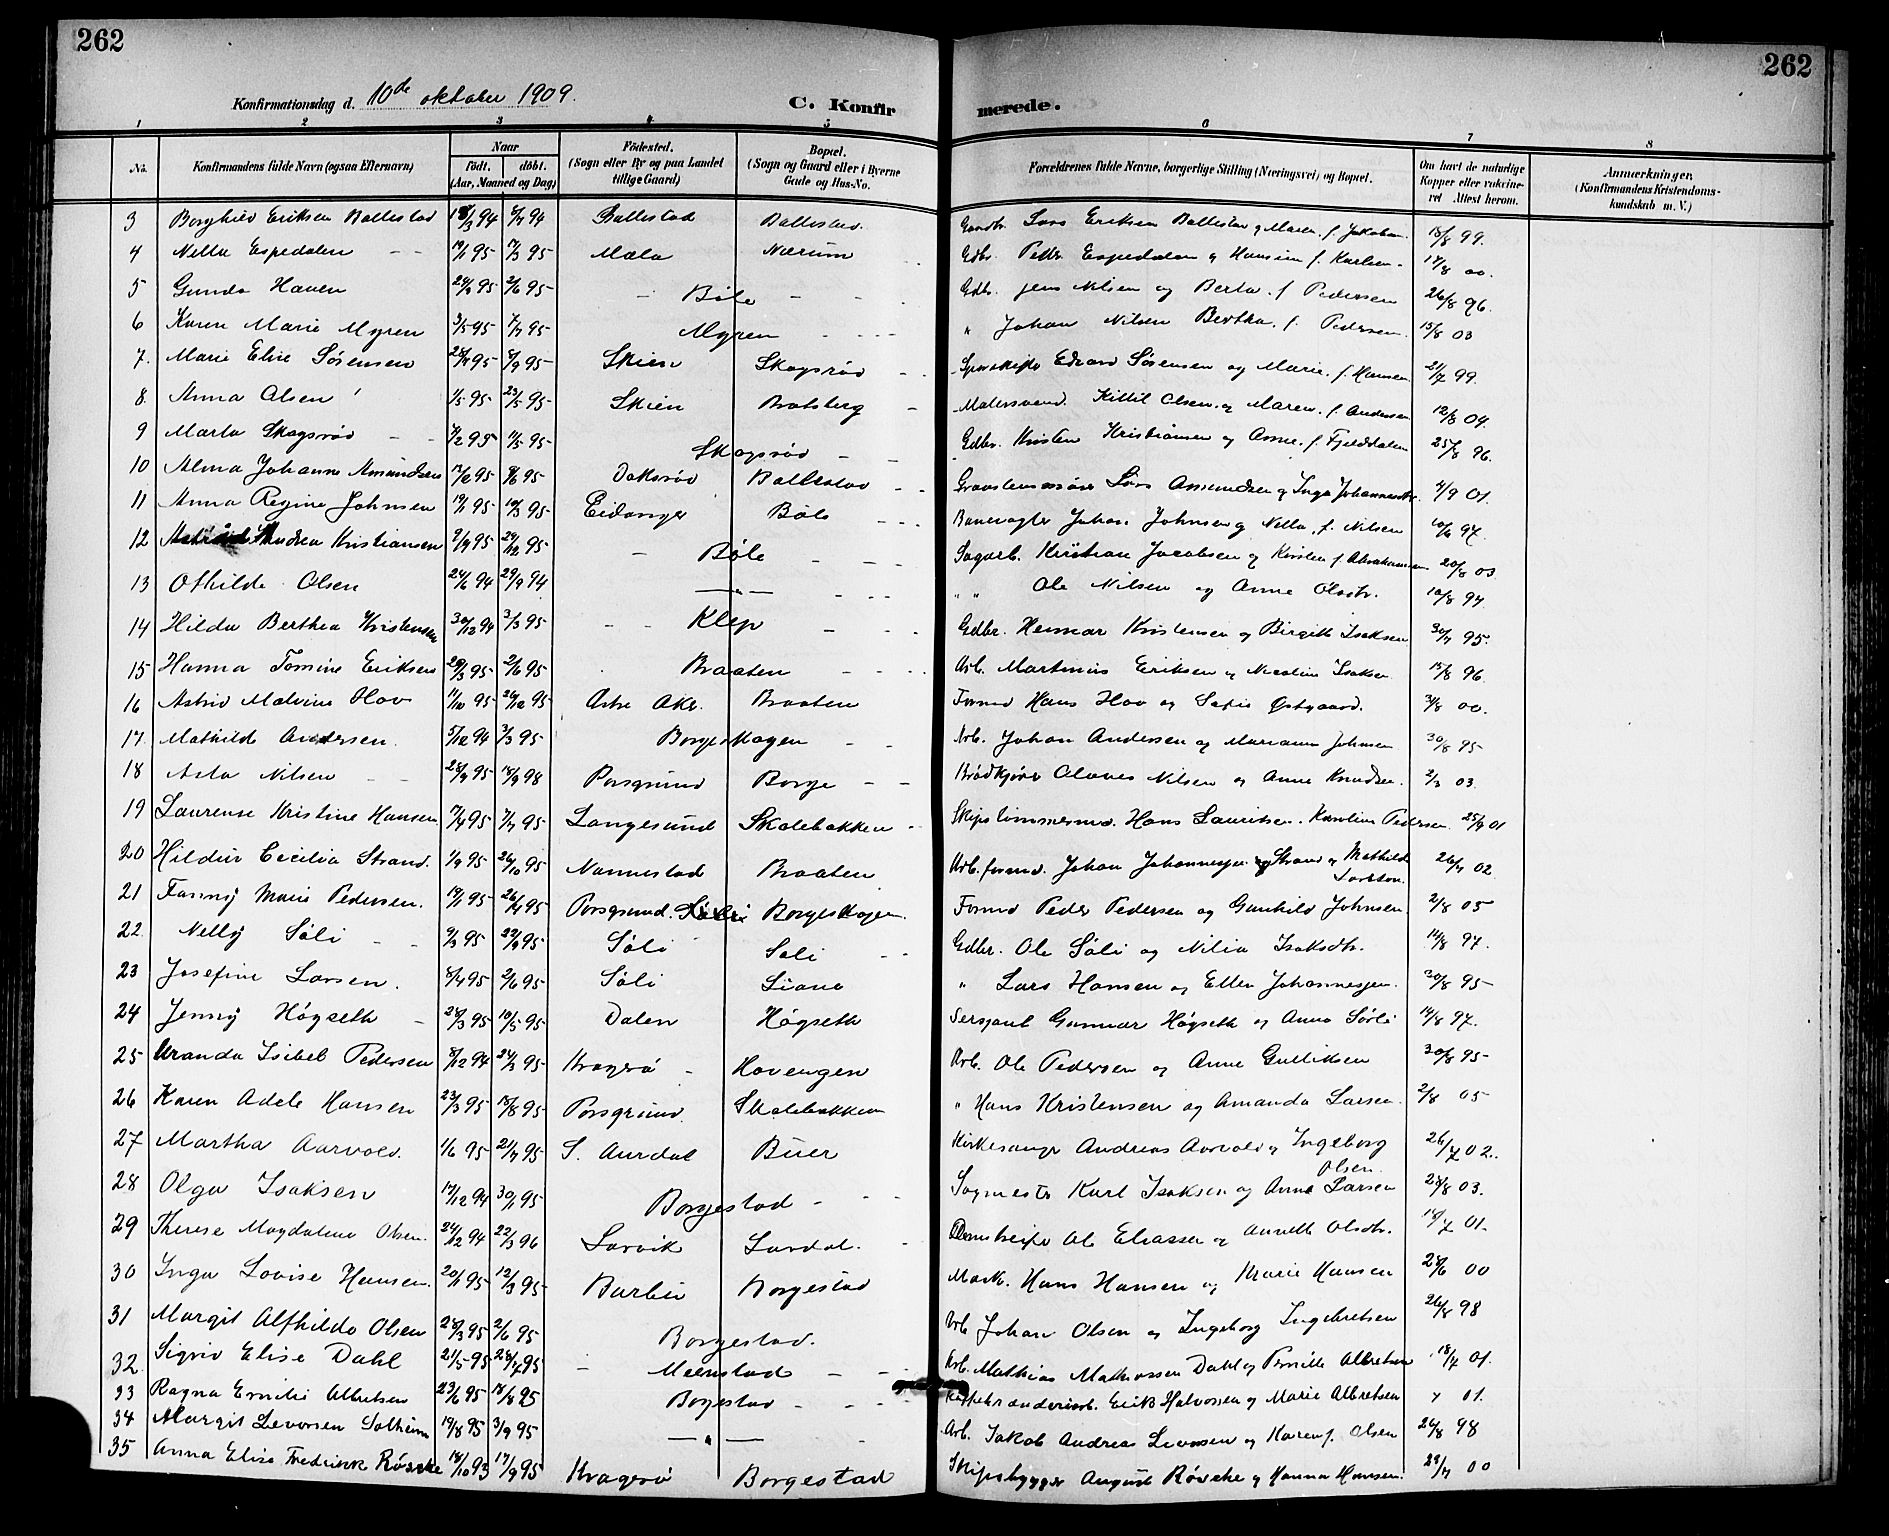 262
262
Konfirmationsdag d. 10de oktober 1909.
C. Konfir
merede.
1 2 3 4 5 6 7 8
No.
Konfirmandens fulde Navn (ogsaa Efternavn)
Naar
Födt. döbt.
(Aar, Maaned og Dag)
Födested.
(Sogn eller By og paa Landet
tillige Gaard)
Bopæl.
(Sogn og Gaard eller i Byerne
Gade og Hus-No.
Forældrenes fulde Navne, borgerlige Stilling (Næringsvei) og Bopæl.
Om havt de naturlige
Kopper eller vaccine-
ret Attest herom.
Anmærkninger.
(Konfirmandens Kristendoms-
kundskab m. V.)
3 Borghild Eriksen Ballestad 94 94 Ballestad Ballestad. Lars Eriksen Ballestad og Maren f. Jakobsen 13/8 99.
4 Nella Espedalen 19/1 95 17/3 95 Mæla Nærum Gdbr. Peder Espedalen og Hansine f. Karlsen 00.
5 Gunda Hauen 95 2/6 95 Böle Gdbr. Jens Nilsen og Berta f. Pedersen 26/8 96.
6 Karen Marie Myren 3/5 95 7/7 95 Myren " Johan Nilsen Bertha f. Pedersen 13/8 03
7. Marie Elise Sörensen 95 8/9 95 Skien Skogsröd Edvard Sörensen og Marie f. Hansen 21/7 99.
8. Anna Olsen 1/5 95 23/5 95 Skien Bratsberg Malersvend Kittil Olsen og Maren f. Andersen 12/8 09.
9 Marta Skogsröd 95 95 Skogsröd Gdbr. Kristen Kristiansen og Anne f. Fjelddalen 25/8 96.
10 Alma Johanne Amundsen 95 95 Doksröd Ballestad Lars Amundsen og Inga Johannesdtr. 4/9 01.
11 Anna Regine Johnsen 19/1 95 10/3 95 Eidanger Böle Banevogter Johan Johnsen og Nella f. Nilsen 97.
12 Andrea Kristiansen 95 29/12 95 Böle Sagarb. Kristian Jacobsen og Kirsten f. Abrahamsen 20/8 03
13 Othilde Olsen 94 94 — " — " " Ole Nilsen og Anne Olsdtr. 10/8 97.
14 Hilda Berthea Kristensen 30/12 94 3/3 95 Klep Gdbr. Heimar Kristensen og Birgitte Isaksen 95.
15 Hanna Tomine Eriksen 95 2/6 95 Braaten Arb. Martinius Eriksen og Nicoline Isaksen 15/8 96.
16 Astrid Malvine Hov 11/10 95 26/12 95 Braaten Formd Hans Hov og Sofie Østgaard. 3/8 00.
17. Mathilde Andersen. 5/12 94 3/3 95 Borgeskogen Arb. Johan Andersen og Mariann Johnsen 30/8 95
18 Asta Nilsen 95 98 Porsgrund Borge Brödkjörer Olaves Nilsen og Anne Knudsen. 03.
19 Laurense Kristine Hansen 95 95 Langesund Skolebakken Skipstömmermd. Hans Lauritsen. Karoline Pedersen 01
20 Hildur Cecilia Strand. 95 95 Nannestad Braaten Arb. formd. Johan Johannesen Strand og Mathilde 02.
21 Fanny Marie Pedersen. 19/1 95 95 Porsgrund Borgeskogen. Formd Peder Pedersen og Gunhild Johnsen 2/8 05
22. Nelly Söli 95 95 Söli Söli Gdbr. Ole Söli og Nilia Isaksdtr. 14/8 97.
23 Josefine Larsen. 8/4 95 2/6 95 Söli Liane " Lars Hansen og Ellen Johannesen. 30/8 95
24 Jenny Högseth 95 10/5 95 Dalen Högseth Sersjant Gunnar Högseth og Anna Sörli 14/8 97.
25 Isibel Pedersen 8/12 94 24/3 95 Kragerö Hovengen Arb. Ole Pedersen og Anne Gulliksen 30/8 95
26 Karen Adele Hansen 23/3 95 18/8 95 Porsgrund Skolebakken " Hans Kristensen og Amanda Larsen. 2/8 05
27 Martha Aarvold. 1/6 95 21/7 95 S. Aurdal Buer Kirkesanger Andreas Aarvold og Ingeborg Olsen. 26/7 02.
28 Olga Isaksen 17/12 94 30/1 95 Borgestad Sagmester Karl Isaksen og Anna Larsen 03.
29 Therese Magdalene Olsen. 24/12 94 22/3 96 Larvik Ole Eliassen og Annette Olsdtr. 01.
30 Inga Lovise Hansen. 20/1 95 12/3 95 Barbu Borgestad Mask. Hans Hansen og Marie Hansen 00
31 Margit Alfhilde Olsen 95 2/6 95 Borgestad. Arb. Johan Olsen og Ingeborg Ingebretsen 26/8 98
32. Sigrid Elise Dahl 21/5 95 28/7 95 Menstad Arb. Mathias Mathiassen Dahl og Pernille Albretsen 18/7 01.
33 Ragna Emilie Albretsen 23/6 95 18/8 95 Borgestad Erik Halvorsen og Marie Albretsen 01.
34 Margit Levorsen Solheim 19/8 95 3/9 95 — " — Arb. Jakob Andreas Levorsen og Karen f. Olsen 98
35 Anna Elise Fredrikke Röscke 18/10 93 17/9 95 Kragerö Borgestad Skipsbygger August Röscke og Hanna Hansen. 00